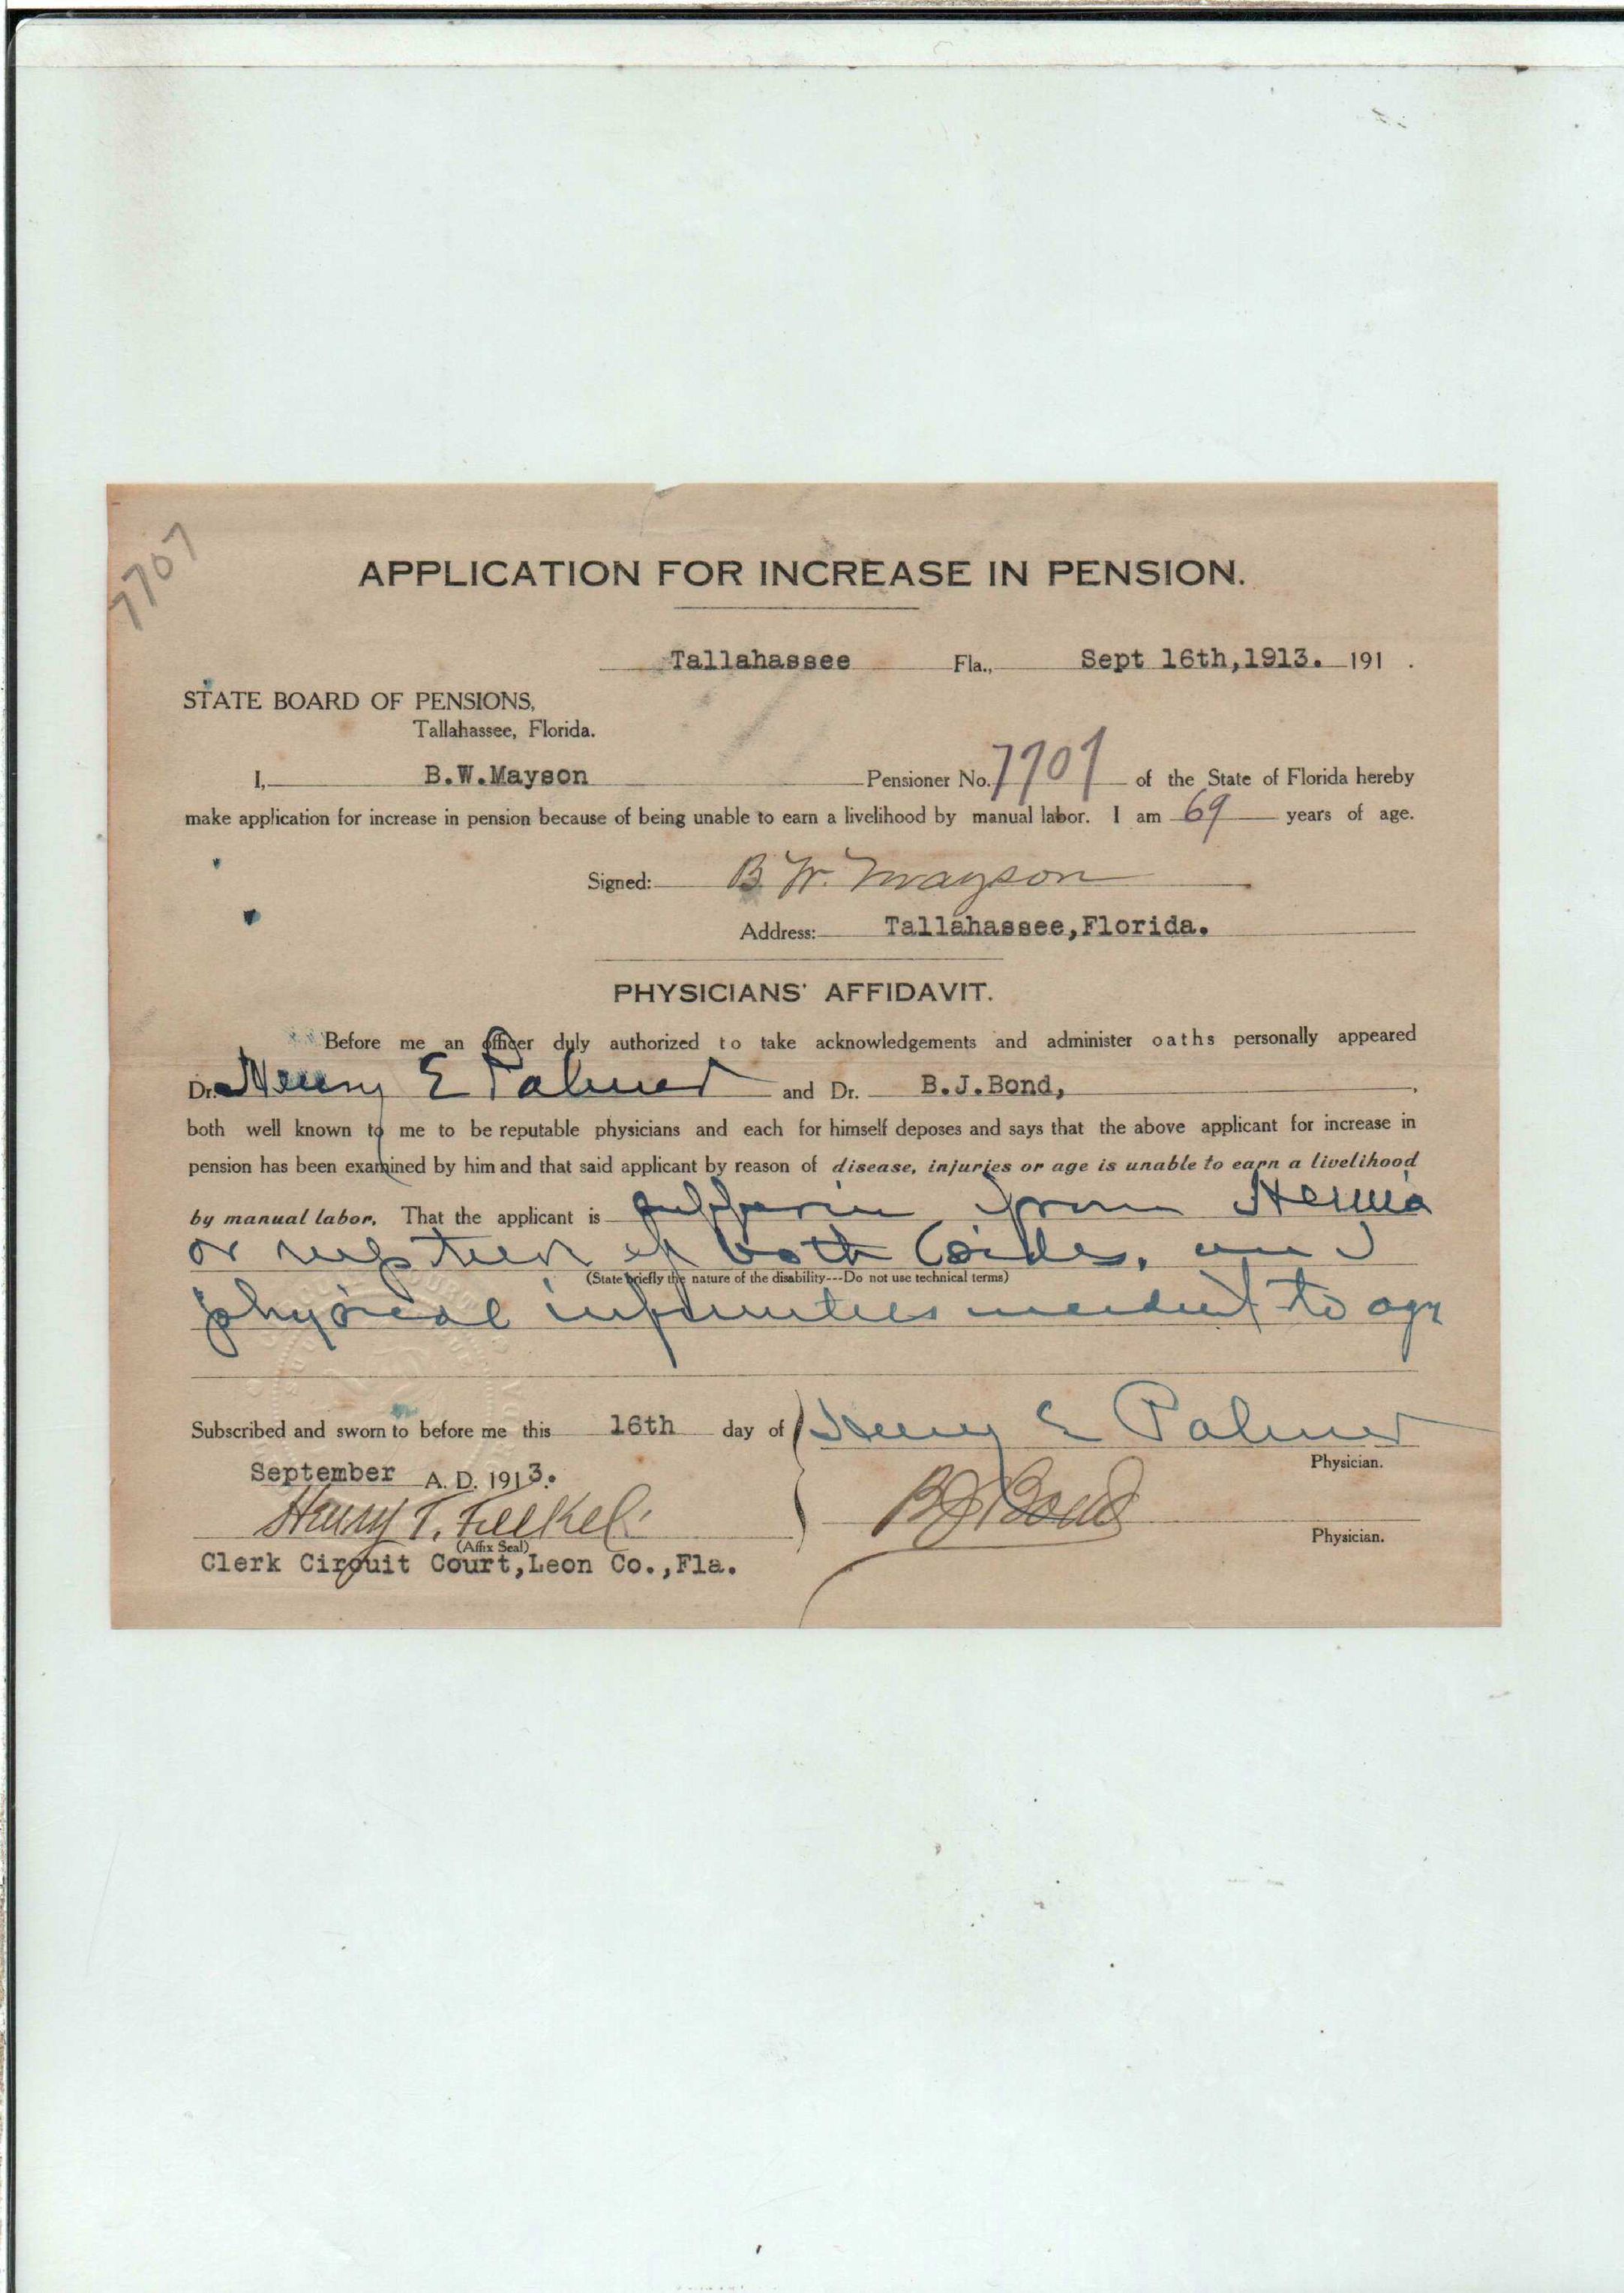 7707
APPLICATION FOR INCREASE IN PENSION.
Tallahassee Fla., Sept 16th,1913. 191 .
STATE BOARD OF PENSIONS,
Tallahassee, Florida.
I, B.W.Mayson Pensioner No. 7707 of the State of Florida hereby
make application for increase in pension because of being unable to earn a livelihood by manual labor. I am 69 years of age.
Signed: B. W. Mayson
Address: Tallahassee,Florida.
PHYSICIANS' AFFIDAVIT.
Before me an officer duly authorized to take acknowledgements and administer oaths personally appeared
Dr. Henry E Palmer and Dr. B.J.Bond,
both well known to me to be reputable physicians and each for himself deposes and says that the above applicant for increase in
pension has been examined by him and that said applicant by reason of disease, injuries or age is unable to earn a livelihood
by manual labor. That the applicant is suffering from Hernia
or rupture of both sides, and
(State briefly the nature of the disability---Do not use technical terms)
physical infirmities incident to age
Subscribed and sworn to before me this 16th day of Henry E Palmer
Physician.
September A. D. 1913.
Henry T. Felkel B J Bond
(Affix Seal) Physician.
Clerk Circuit Court,Leon Co.,Fla.